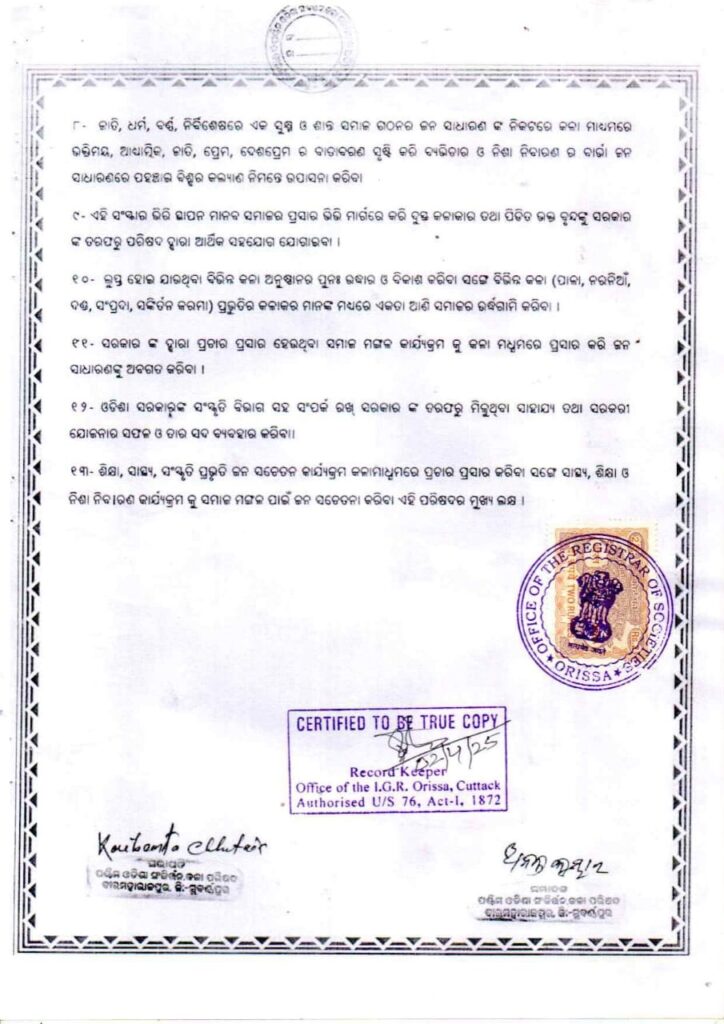 ୮- ଜାତି, ଧର୍ମ, ବର୍ଣ୍ଣ, ନିର୍ବିଶେଷରେ ଏକ ସୁଷ୍ଥ ଓ ଶାନ୍ତ ସମାଜ ଗଠନର ଜନ ସାଧାରଣ ଙ୍କ ନିକଟରେ କଳା ମାଧ୍ୟମରେ
ଭକ୍ତିମୟ, ଆଧ୍ୟାତ୍ମିକ, ଜାତି, ପ୍ରେମ, ଦେଶପ୍ରେମ ର ବାତାବରଣ ସୃଷ୍ଟି କରି ବ୍ୟଭିଚାର ଓ ନିଶା ନିବାରଣ ର ବାର୍ତ୍ତା ଜନ
ସାଧାରଣରେ ପହଞ୍ଚାଇ ବିଶ୍ୱର କଲ୍ୟାଣ ନିମନ୍ତେ ଉପାସନା କରିବା
୯- ଏହି ସଂସ୍କାର ଭିତି ସ୍ଥାପନ ମାନବ ସମାଜର ପ୍ରସାର ଭିତି ମାର୍ଗରେ କରି ଦୁସ୍ତ କଳାକାର ତଥା ପିଡିତ ଭକ୍ତ ବୃନ୍ଦଙ୍କୁ ସରକାର
ଙ୍କ ତରଫରୁ ପରିଷଦ ଦ୍ଵାରା ଆର୍ଥିକ ସହଯୋଗ ଯୋଗାଇବା ।
୧୦- ଲୁପ୍ତ ହୋଇ ଯାଉଥିବା ବିଭିନ୍ନ କଳା ଅନୁଷ୍ଠାନର ପୁନଃ ଉଦ୍ଧାର ଓ ବିକାଶ କରିବା ସଙ୍ଗେ ବିଭିନ୍ନ କଳା (ପାଲା, ନଉନିଆଁ,
ଦଣ୍ଡ, ସଂପ୍ରଦା, ସଙ୍କିର୍ତନ କରମା) ପ୍ରଭୃତିର କଳାକର ମାନଙ୍କ ମଧ୍ୟରେ ଏକତା ଆଣି ସମାଜର ଉର୍ଦ୍ଧଗାମି କରିବା ।
୧୧- ସରକାର ଙ୍କ ଦ୍ଵାରା ପ୍ରଚାର ପ୍ରସାର ହେଉଥିବା ସମାଜ ମଙ୍ଗଳ କାର୍ଯ୍ୟକ୍ରମ କୁ କଳା ମଧ୍ୟମରେ ପ୍ରସାର କରି ଜନ
ସାଧାରଣଙ୍କୁ ଅବଗତ କରିବା ।
୧୨- ଓଡିଶା ସରକାରଙ୍କ ସଂସ୍କୃତି ବିଭାଗ ସହ ସଂପର୍କ ରଖି ସରକାର ଙ୍କ ତରଫରୁ ମିଳୁଥିବା ସାହାଯ୍ୟ ତଥା ସରକରୀ
ଯୋଜନାର ସଫଳ ଓ ତାର ସଦ ବ୍ୟବହାର କରିବା।
୧୩- ଶିକ୍ଷା, ସାସ୍ଥ୍ୟ, ସଂସ୍କୃତି ପ୍ରଭୃତି ଜନ ସଚେତନ କାର୍ଯ୍ୟକ୍ରମ କଳାମାଧ୍ୟମରେ ପ୍ରଚାର ପ୍ରସାର କରିବା ସଙ୍ଗେ ସାସ୍ଥ୍ୟ, ଶିକ୍ଷା ଓ
ନିଶା ନିବାରଣ କାର୍ଯ୍ୟକ୍ରମ କୁ ସମାଜ ମଙ୍ଗଳ ପାଇଁ ଜନ ସଚେତନା କରିବା ଏହି ପରିଷଦର ମୁଖ୍ୟ ଲକ୍ଷ ।
OFFICE OF THE REGISTRAR OF SOCIETIES
★ ORISSA ★
CERTIFIED TO BE TRUE COPY
02/4/25
Record Keeper
Office of the I.G.R. Orissa, Cuttack
Authorised U/S 76, Act-I, 1872
ସଭାପତି
ପଶ୍ଚିମ ଓଡିଶା ସଂକିର୍ତ୍ତନ କଳା ପରିଷଦ
ବୀରମହାରାଜପୁର, ଜି:-ସୁବର୍ଣ୍ଣପୁର
ସମ୍ପାଦକ
ପଶ୍ଚିମ ଓଡିଶା ସଂକିର୍ତ୍ତନ କଳା ପରିଷଦ
ବୀରମହାରାଜପୁର, ଜି:-ସୁବର୍ଣ୍ଣପୁର